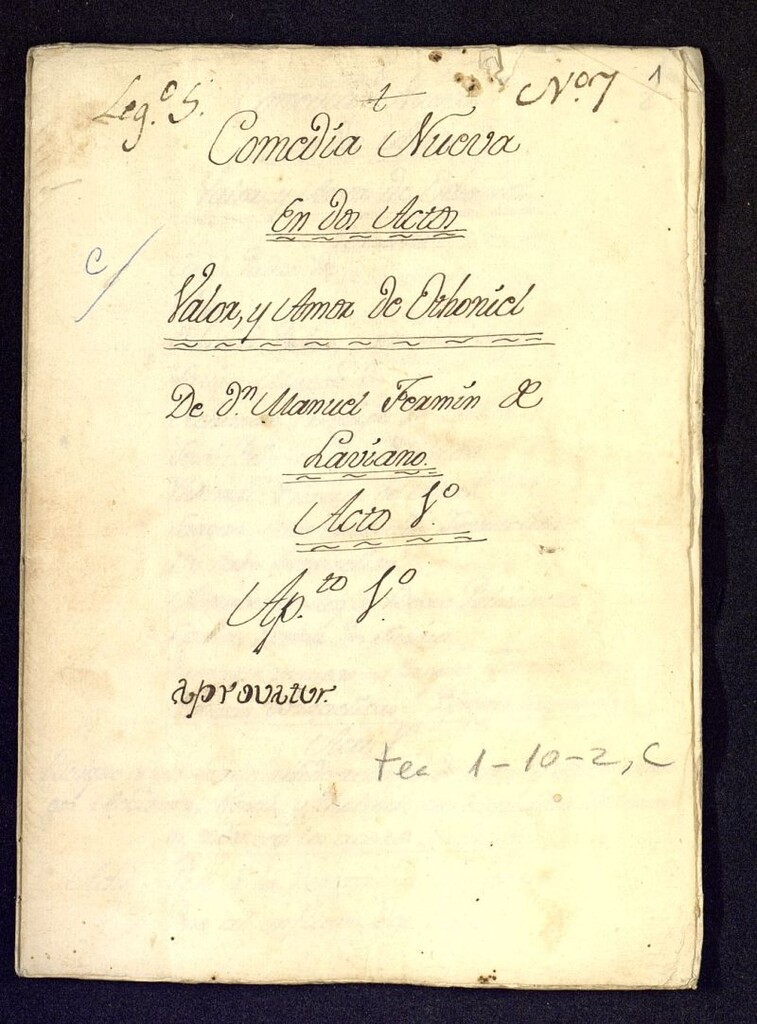 Leg.º 5. t Nº 7 1
Comedia Nueva
En dos Actos
c/
Valor, y Amor de Othoniel
De Dn. Manuel Fermin de
Laviano.
Acto 1º
Ap.to 1º
aprovatur.
Tea 1-10-2, C